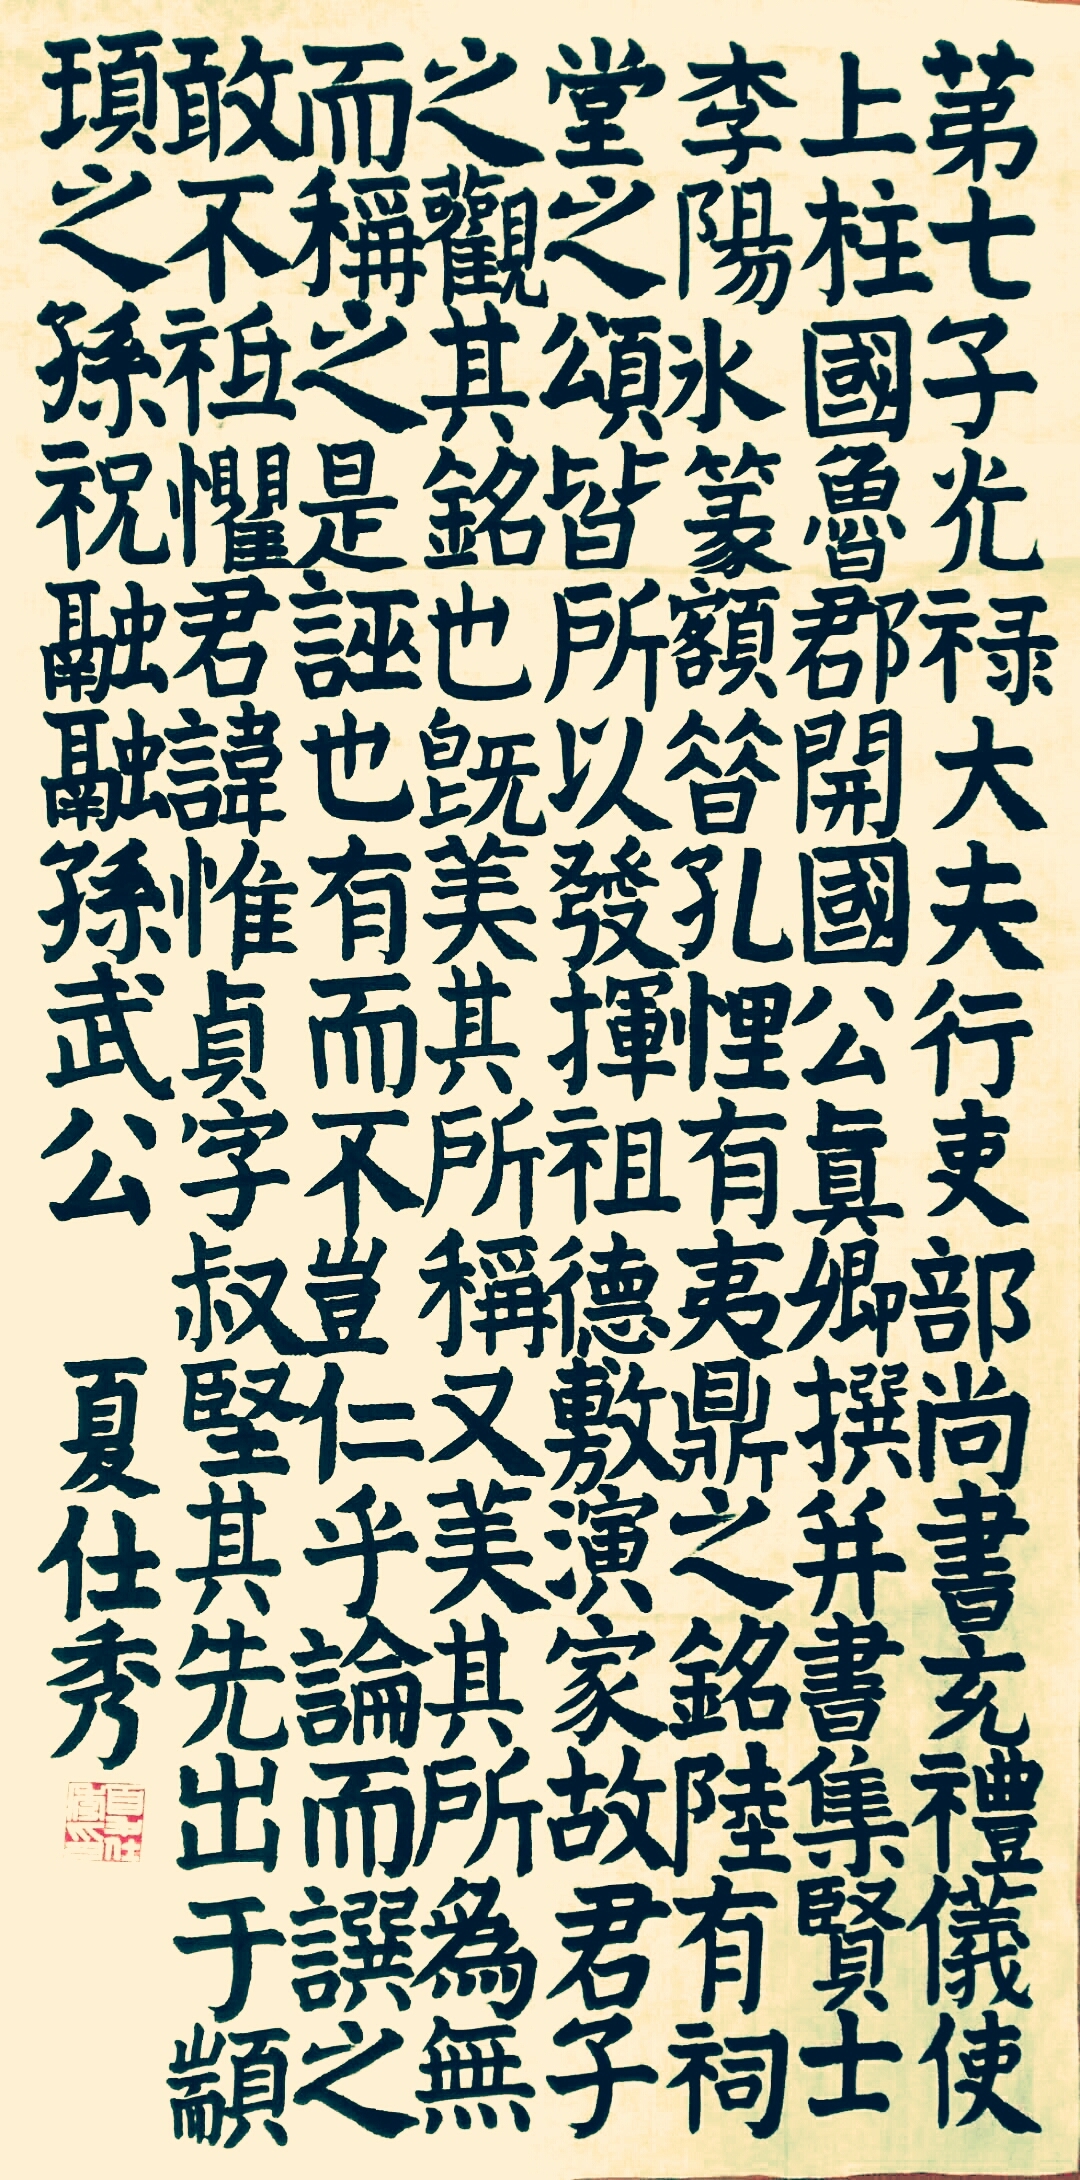 苐七子光禄大夫行吏部尚書充禮儀使
上柱國魯郡開國公真卿撰并書集賢士
李陽氷篆額昝孔悝有夷鼎之銘陸有祠
堂之頌皆所以發揮祖德敷演家故君子
之觀其銘也旣美其所稱又美其所為無
而稱之是誣也有而不豈仁乎論而譔之
敢不祗懼君諱惟貞字叔堅其先出于顓
頊之孫祝融融孫武公
夏仕秀